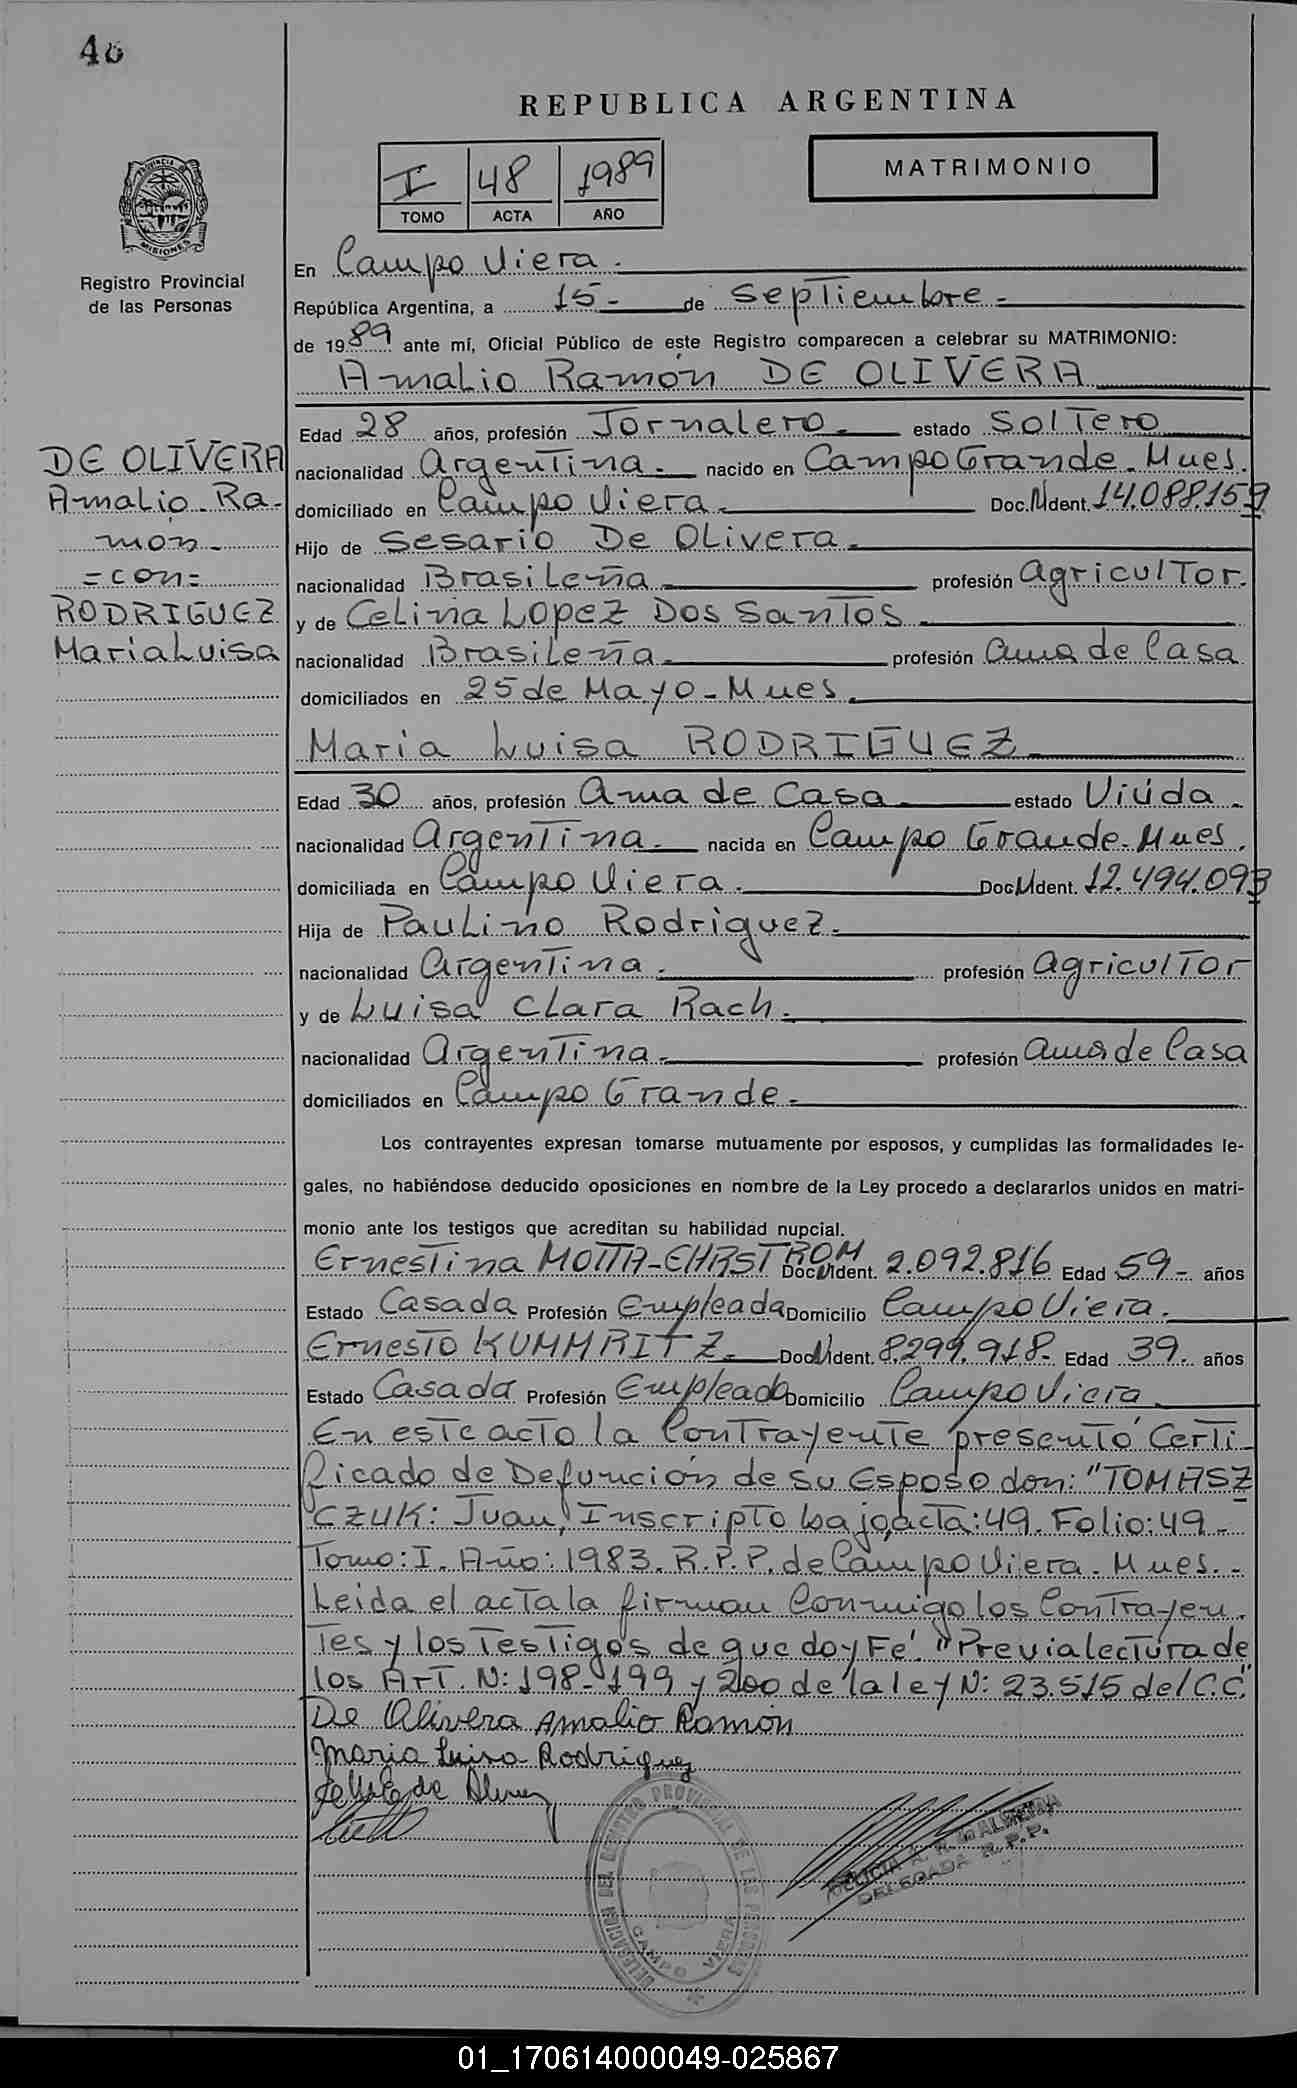 48
REPUBLICA ARGENTINA
I 48 1989
TOMO ACTA AÑO
MATRIMONIO
PROVINCIA DE
MISIONES
Registro Provincial
de las Personas
En Campo Viera.
República Argentina, a 15- de Septiembre.-
de 1989 ante mí, Oficial Público de este Registro comparecen a celebrar su MATRIMONIO:
Amalio Ramón DE OLIVERA
Edad 28 años, profesión Jornalero. estado Soltero
nacionalidad Argentina. nacido en Campo Grande. Mnes.
domiciliado en Campo Viera. Doc.N.Ident. 14.088.159
Hijo de Sesario De Olivera.
nacionalidad Brasileña profesión agricultor.
y de Celina Lopez Dos Santos
nacionalidad Brasileña. profesión ama de Casa
domiciliados en 25 de Mayo-Mnes.
DE OLIVERA
Amalio Ra-
món-
=con=
RODRIGUEZ
Maria Luisa
Maria Luisa RODRIGUEZ
Edad 30 años, profesión Ama de Casa estado Viúda.
nacionalidad Argentina. nacida en Campo Grande. Mnes.
domiciliada en Campo Viera. Doc.N.Ident. 12.494.093
Hija de Paulino Rodriguez.
nacionalidad Argentina. profesión agricultor
y de Luisa Clara Rach.
nacionalidad Argentina. profesión ama de Casa
domiciliados en Campo Grande.
Los contrayentes expresan tomarse mutuamente por esposos, y cumplidas las formalidades le-
gales, no habiéndose deducido oposiciones en nombre de la Ley procedo a declararlos unidos en matri-
monio ante los testigos que acreditan su habilidad nupcial.
Ernestina MOTTA-EHRSTROM Doc.N.Ident. 2.092.816 Edad 59- años
Estado Casada Profesión Empleada Domicilio Campo Viera.
Ernesto KUMMRITZ. Doc.N.Ident. 8.299.918- Edad 39. años
Estado Casada Profesión Empleado Domicilio Campo Viera
En este acto la Contrayente presentó Certi-
ficado de Defunción de su Esposo don: "TOMASZ
CZUK: Juan, Inscripto bajo acta: 49. Folio: 49-
Tomo: I. Año: 1983. R.P.P. de Campo Viera. Mnes.-
Leida el acta la firman Conmigo los Contrayen.
tes y los testigos de que doy Fé. "Previa lectura de
los Art. N: 198-199 y 200 de la ley N: 23.515 del C.C."
De Olivera Amalio Ramón
Maria Luisa Rodriguez
DELEGACION DEL REGISTRO PROVINCIAL DE LAS PERSONAS
CAMPO VIERA
DELEGADA R.P.P.
01_170614000049-025867